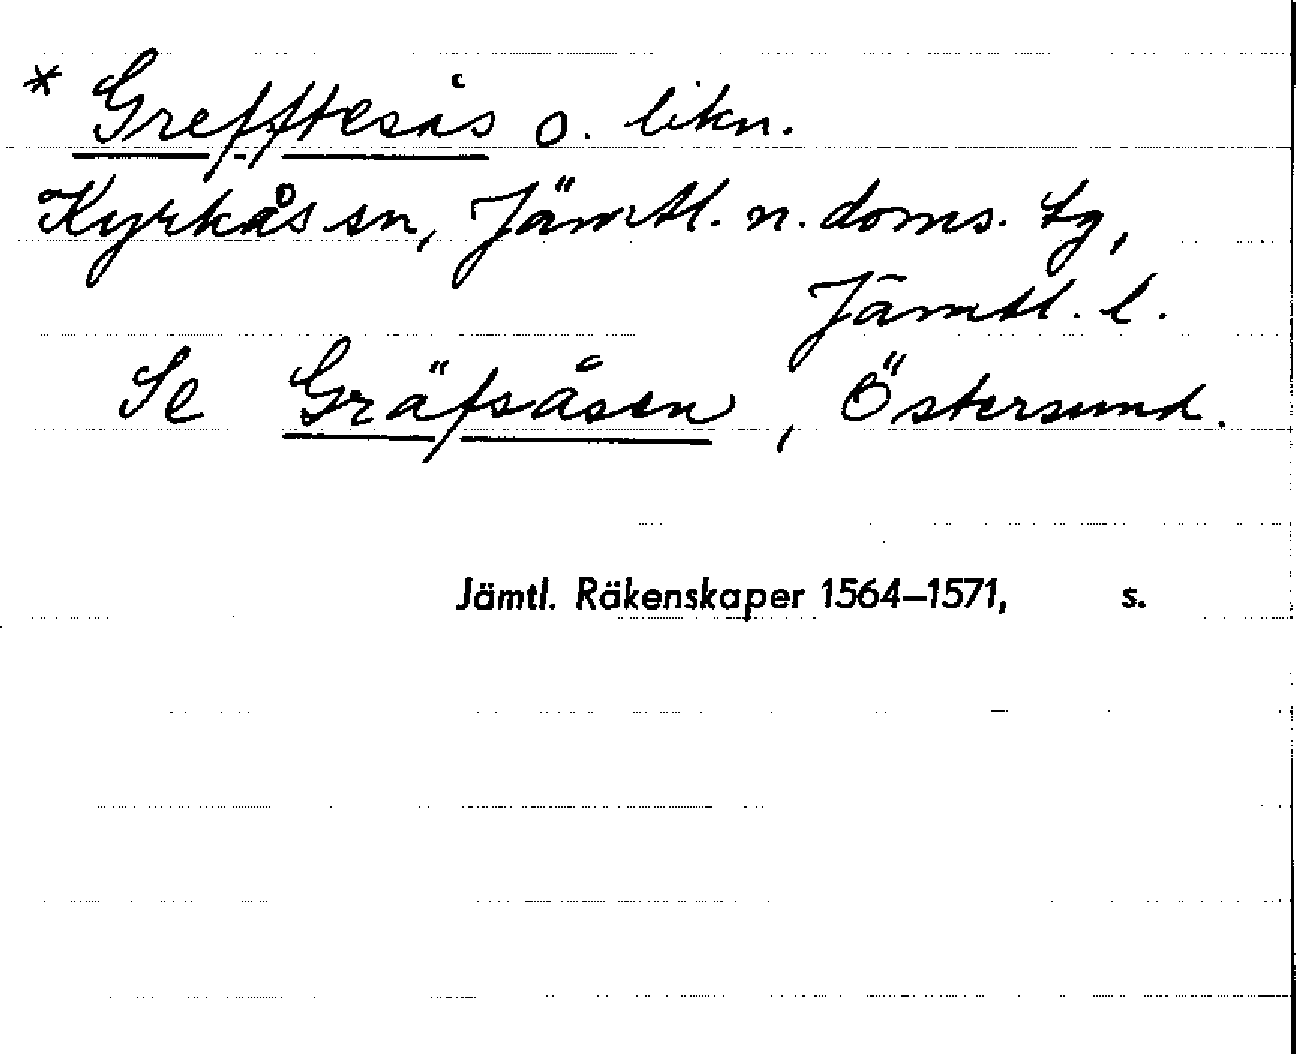 * Grefftesås o. likn.
Kyrkås sn, Jämtl. n. doms. tg,
Jämtl. l.
Se Gräfsåsen, Östersund.
Jämtl. Räkenskaper 1564–1571, s.